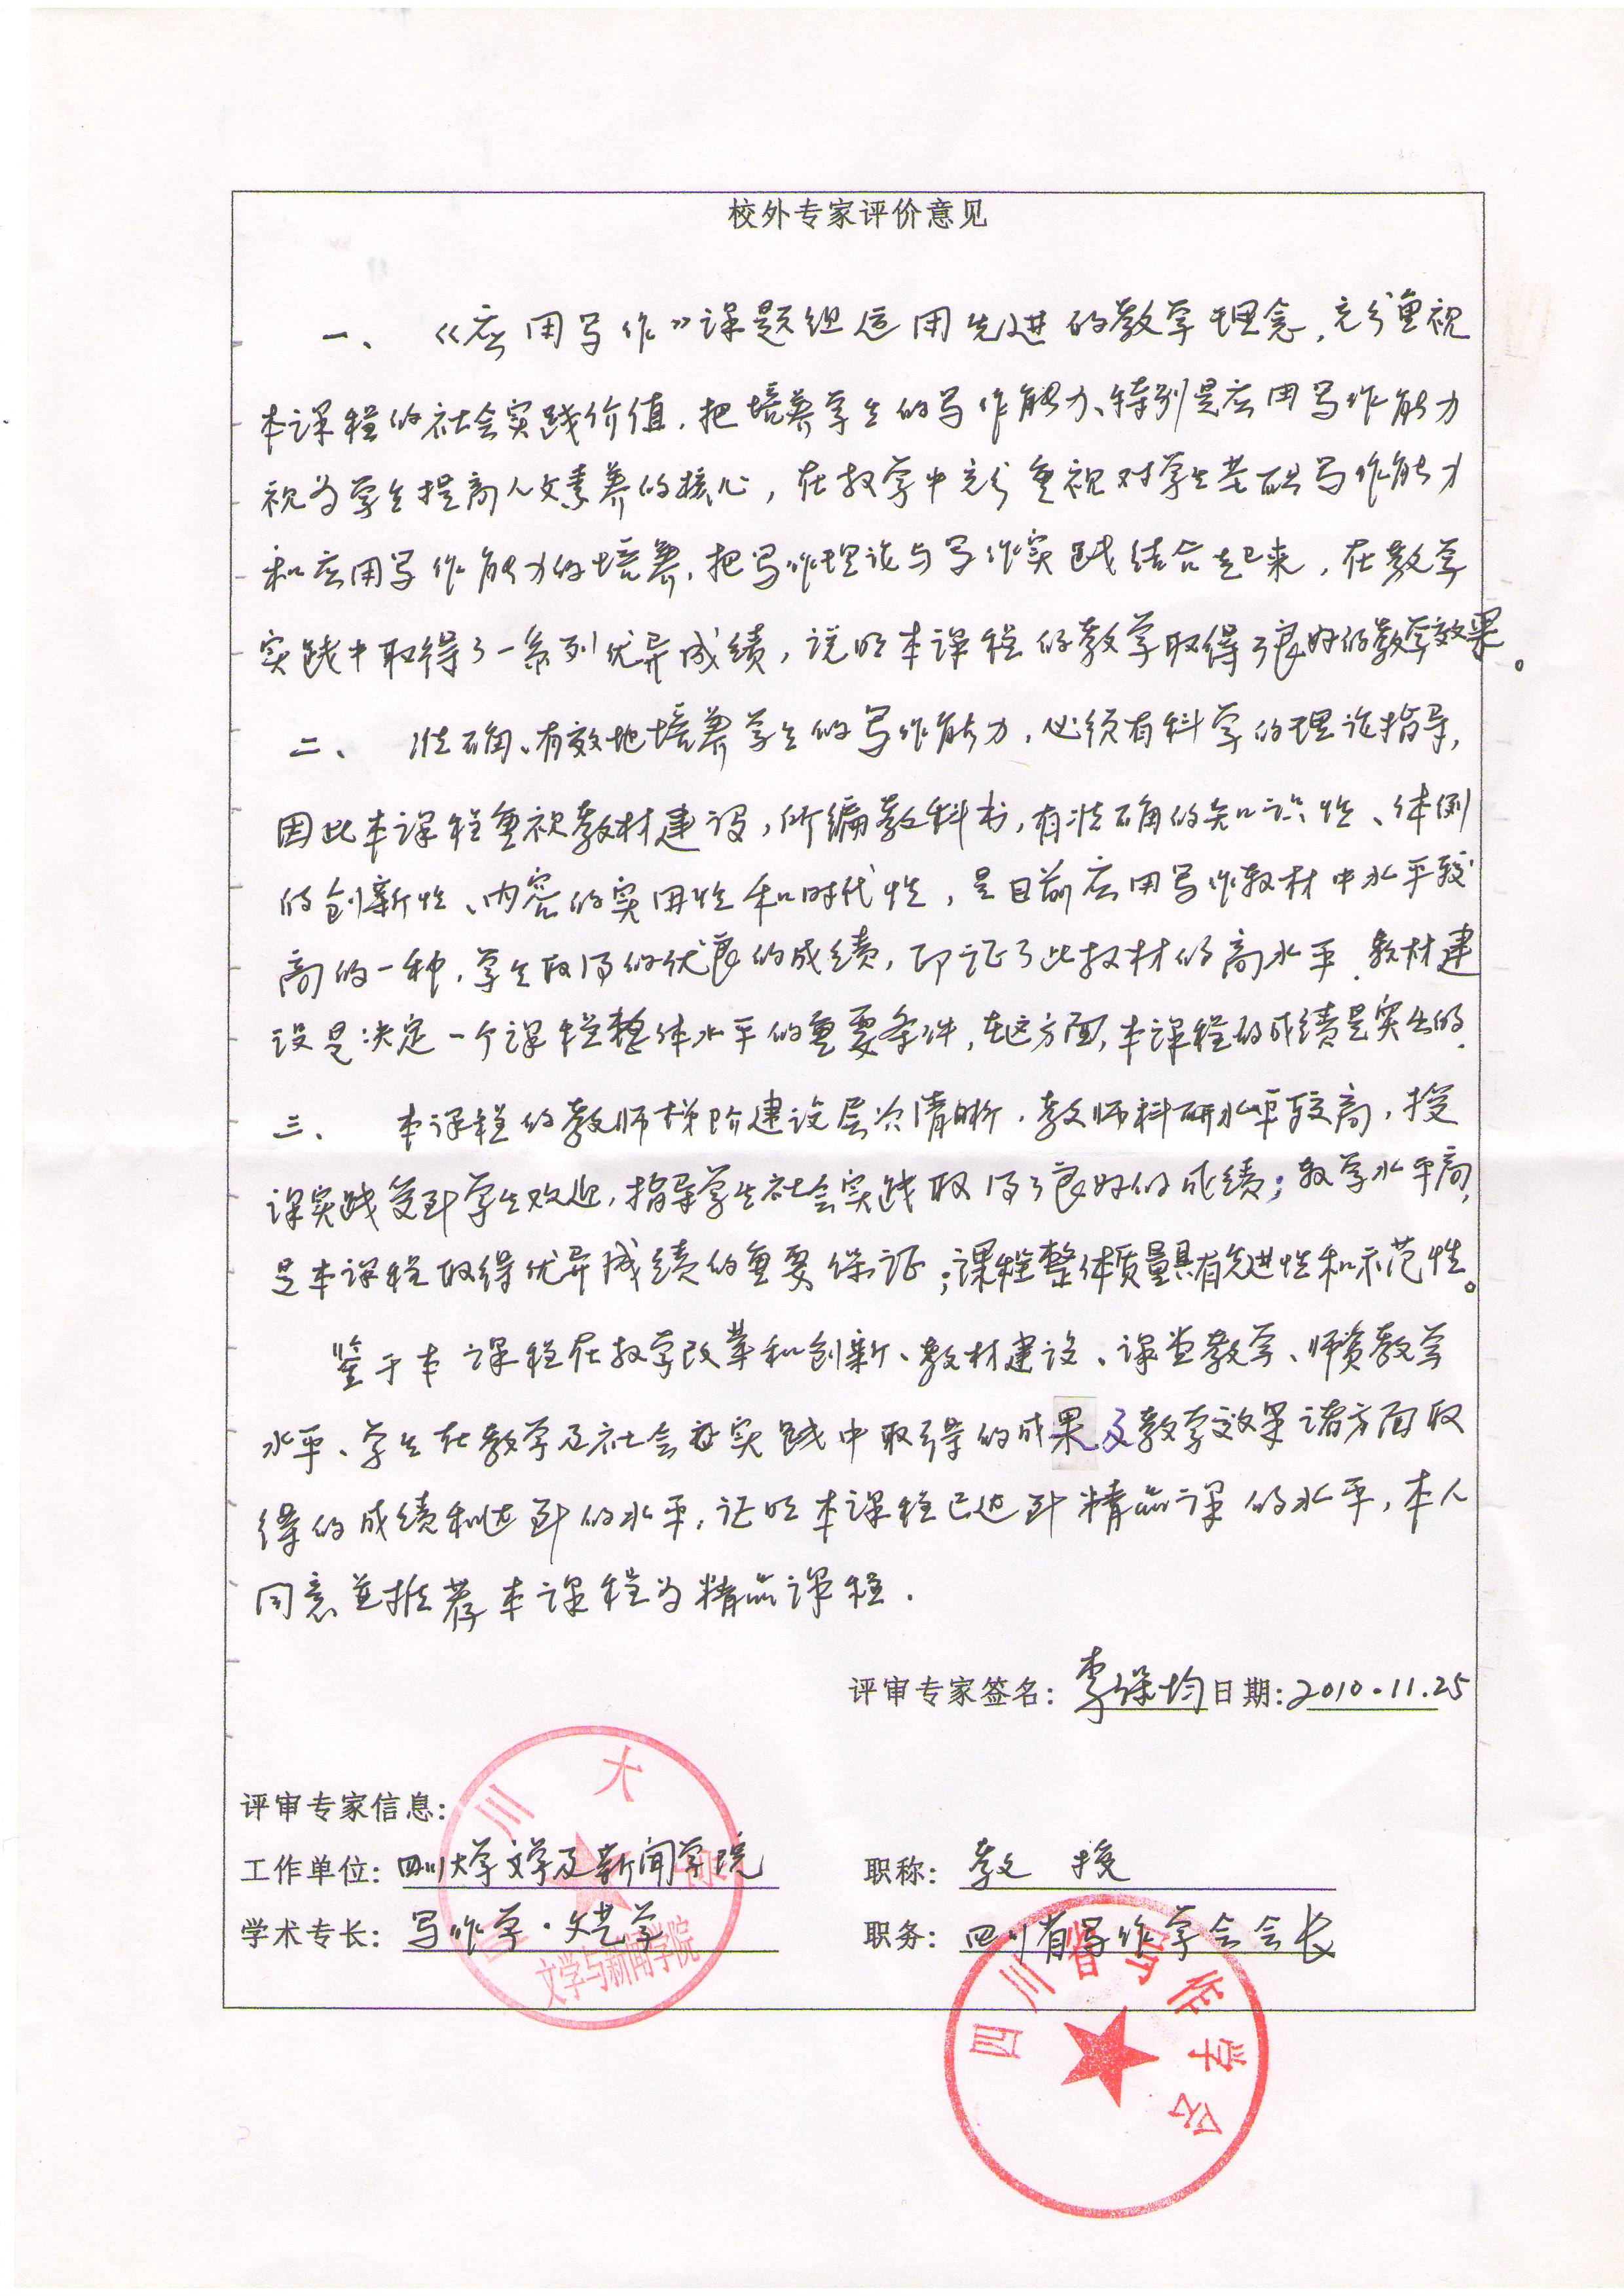 校外专家评价意见
一、《应用写作》课题组运用先进的教学理念,充分重视
本课程的社会实践价值,把培养学生的写作能力、特别是应用写作能力
视为学生提高人文素养的核心,在教学中充分重视对学生基础写作能力
和应用写作能力的培养,把写作理论与写作实践结合起来,在教学
实践中取得了一系列优异成绩,说明本课程的教学取得了良好的教学效果。
二、准确、有效地培养学生的写作能力,必须有科学的理论指导,
因此本课程重视教材建设,所编教科书,有准确的知识性、体例
的创新性、内容的实用性和时代性,是目前应用写作教材中水平较
高的一种,学生取得的优良的成绩,印证了此教材的高水平.教材建
设是决定一个课程整体水平的重要条件,在这方面,本课程的成绩是突出的.
三、本课程的教师梯阶建设层次清晰,教师科研水平较高,授
课实践受到学生欢迎,指导学生社会实践取得了良好的成绩;教学水平高,
是本课程取得优异成绩的重要保证;课程整体质量具有先进性和示范性。
鉴于本课程在教学改革和创新、教材建设、课堂教学、师资教学
水平、学生在教学及社会实践中取得的成果及教学效果诸方面取
得的成绩和达到的水平,证明本课程已达到精品课的水平,本人
同意并推荐本课程为精品课程.
评审专家签名:李保均日期:2010.11.25
评审专家信息:
工作单位:四川大学文学及新闻学院 职称:教授
学术专长:写作学·文艺学 职务:四川省写作学会会长
四川大学
文学与新闻学院
四川省写作学会